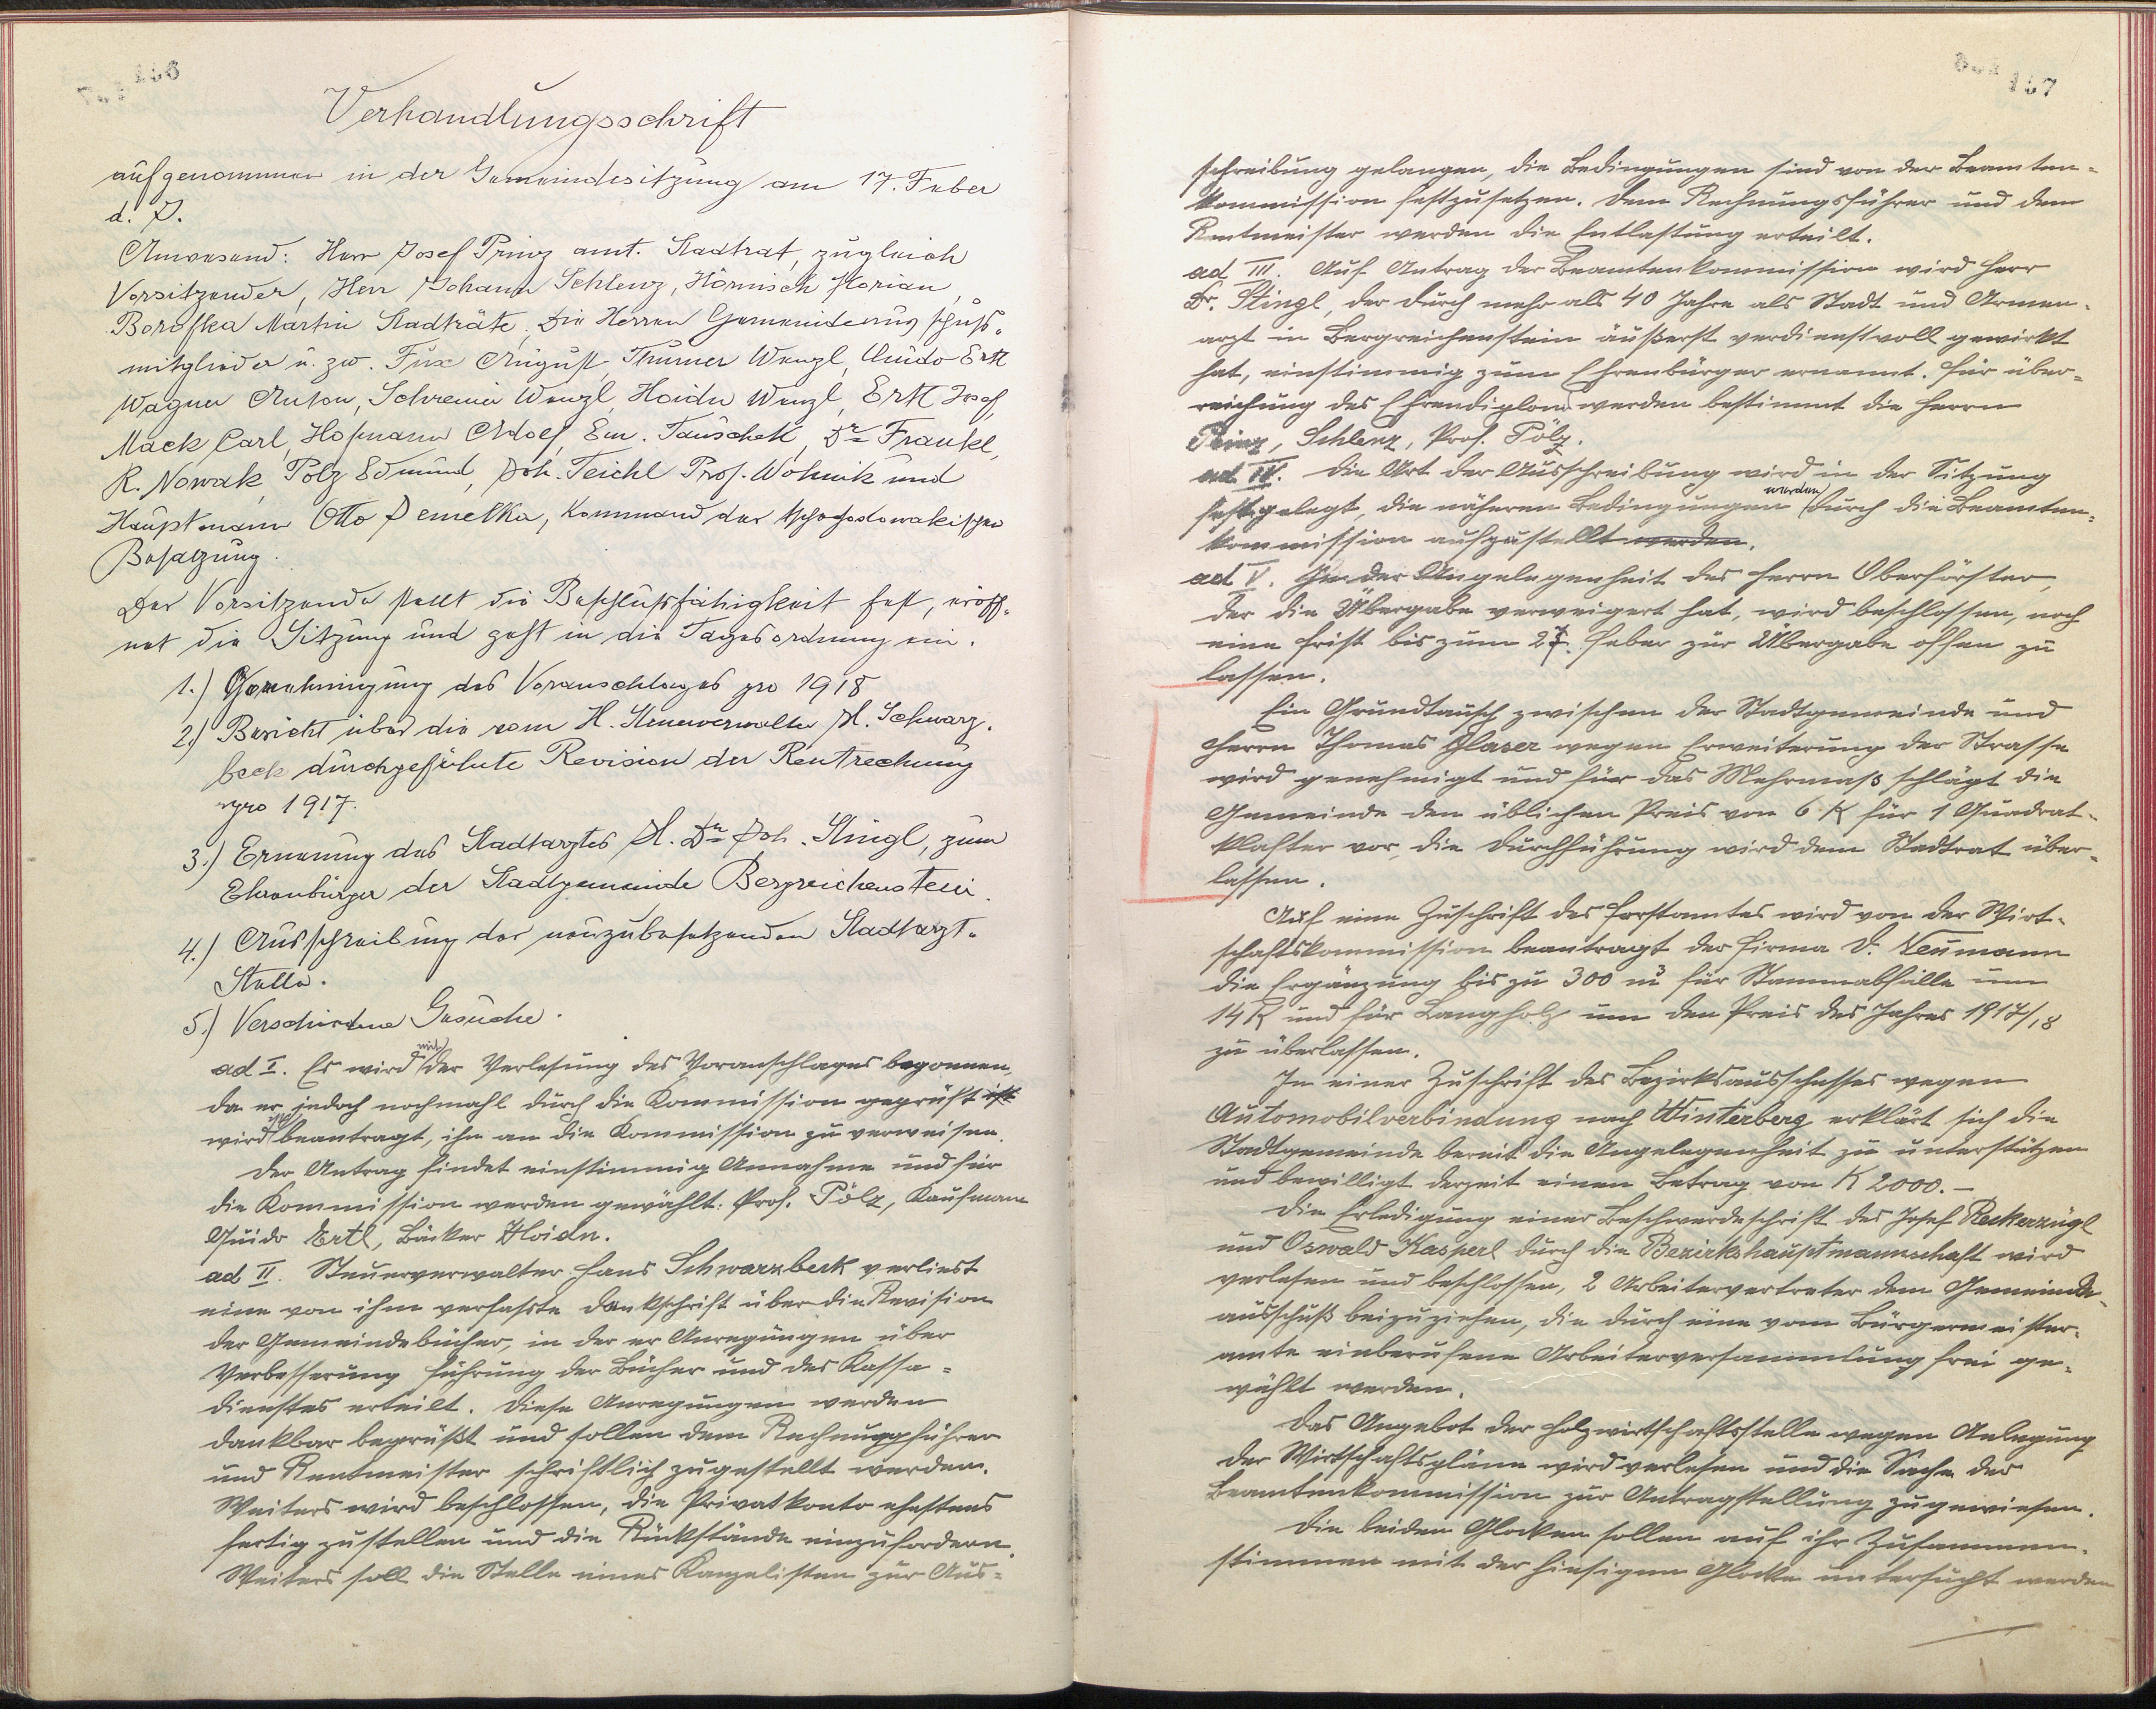 156
Verhandlungsschrift
aufgenommen in der Gemeindesitzung am 17. Feber
d. J.
Anwesend: Herr Josef Prinz amt. Stadtrat, zugleich
Vorsitzender, Herr Johann Schlenz, Hörnisch Florian,
Borofka Martin Stadträte. Die Herren Gemeindeausschuß-
mitglieder u. zw. Fux August, Thurner Wenzl, Guido Ertl
Wagner Anton, Schreiner Wenzl, Hoidn Wenzl, Ertl Josef,
Mack Carl, Hofmann Adolf, Em. Tauschek, Dr. Frankl,
R. Nowak, Pölz Edmund, Joh. Teichl Prof. Wohnik und
Hauptmann Otto Jemelka, Kommand der tschechoslowakischen
Besatzung.
Der Vorsitzende stellt die Beschlußfähigkeit fest, eröff-
net die Sitzung und geht in die Tagesordnung ein.
1.) Genehmigung des Voranschlages pro 1918
2.) Bericht über die vom H. Steuerverwalter H. Schwarz-
beck durchgeführte Revision der Rentrechnung
pro 1917.
3.) Ernenung des Stadtarztes H. Dr. Joh. Stingl, zum
Ehrenbürger der Stadtgemeinde Bergreichenstein.
4.) Ausschreibung der neuzubesetzenden Stadtarzt-
Stelle.
5.) Verschiedene Gesuche.
ad I. Es wird mit der Verlesung des Voranschlages begonnen,
da er jedoch nochmahl durch die Kommission geprüft ist
wird beantragt, ihn an die Kommission zu verweisen.
Der Antrag findet einstimmig Annahme und für
die Kommission werden gewählt: Prof. Pölz, Kaufmann
Guido Ertl, Bäcker Hoidn.
ad II. Steuerverwalter Hans Schwarzbeck verliest
eine von ihm verfaßte Denkschrift über die Revision
der Gemeindebücher, in der er Anregungen über
Verbesserung Führung der Bücher und des Kassa-
dienstes erteilt. Diese Anregungen werden
dankbar begrüßt und sollen dem Rechnungsführer
und Rentmeister schriftlich zugestellt werden.
Weiters wird beschlossen, die Privatkonto ehestens
fertig zustellen und die Rückstände einzufordern.
Weiters soll die Stelle eines Kanzelisten zur Aus-
157
schreibung gelangen, die Bedingungen sind von der Beamten-
kommission festzusetzen. Dem Rechnungsführer und dem
Rentmeister werden die Entlastung erteilt.
ad III. Auf Antrag der Beamtenkommission wird Herr
Dr. Stingl, der durch mehr als 40 Jahre als Stadt und Armen-
arzt in Bergreichenstein äußerst verdienstvoll gewirkt
hat, einstimmig zum Ehrenbürger ernannt. Für über-
reichung des Ehrendiploms werden bestimmt die Herrn
Prinz, Schlenz, Prof. Pölz.
ad IV. Die Art der Ausschreibung wird in der Sitzung
festgelegt, die näheren Bedingungen werden durch die Beamten-
kommission aufgestellt werden.
ad V. In der Angelegenheit des Herrn Oberförster,
der die Übergabe verweigert hat, wird beschlossen, noch
eine Frist bis zum 27. Feber zur Übergabe offen zu
lassen.
Ein Grundtausch zwischen der Stadtgemeinde und
Herrn Thomas Glaser wegen Erweiterung der Strasse
wird genehmigt und für das Mehrmaß schlägt die
Gemeinde den üblichen Preis von 6 K für 1 Quadrat-
klafter vor, die Durchführung wird dem Stadtrat über-
lassen.
Auf eine Zuschrift des Forstamtes wird von der Wirt-
schaftskommission beantragt der Firma D. Neumann
die Ergänzung bis zu 300 m³ für Stammabfälle um
14 K und für Langholz um den Preis des Jahres 1917/18
zu überlassen.
In einer Zuschrift des Bezirksausschusses wegen
Automobilverbindung nach Winterberg erklärt sich die
Stadtgemeinde bereit die Angelegenheit zu unterstützen
und bewilligt derzeit einen Betrag von K 2000.-
Die Erledigung einer Beschwerdeschrift des Josef Reckerzügl
und Oswald Kasperl durch die Bezirkshauptmannschaft wird
verlesen und beschlossen, 2 Arbeitervertreter dem Gemeinde-
ausschuß beizuziehen, die durch eine vom Bürgermeister-
amte einberufene Arbeiterversammlung frei ge-
wählt werden.
Das Angebot der Holzwirtschaftsstelle wegen Anlegung
der Wirtschaftspläne wird verlesen und die Sache der
Beamtenkommission zur Antragstellung zugewiesen.
Die beiden Glocken sollen auf ihr Zusammen-
stimmen mit der hiesigen Glocke untersucht werden